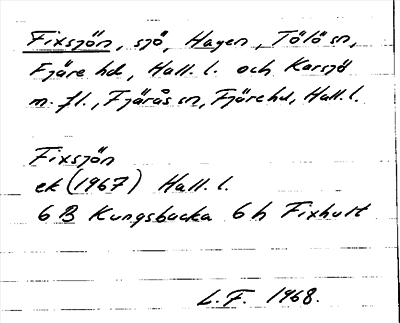 Fixsjön, sjö, Hagen, Tölö sn,
Fjäre hd, Hall. l. och Karsjö
m. fl., Fjärås sn, Fjäre hd, Hall. l.
Fixsjön
ek (1967) Hall. l.
6 B Kungsbacka 6 h Fixhult
L. F. 1968.